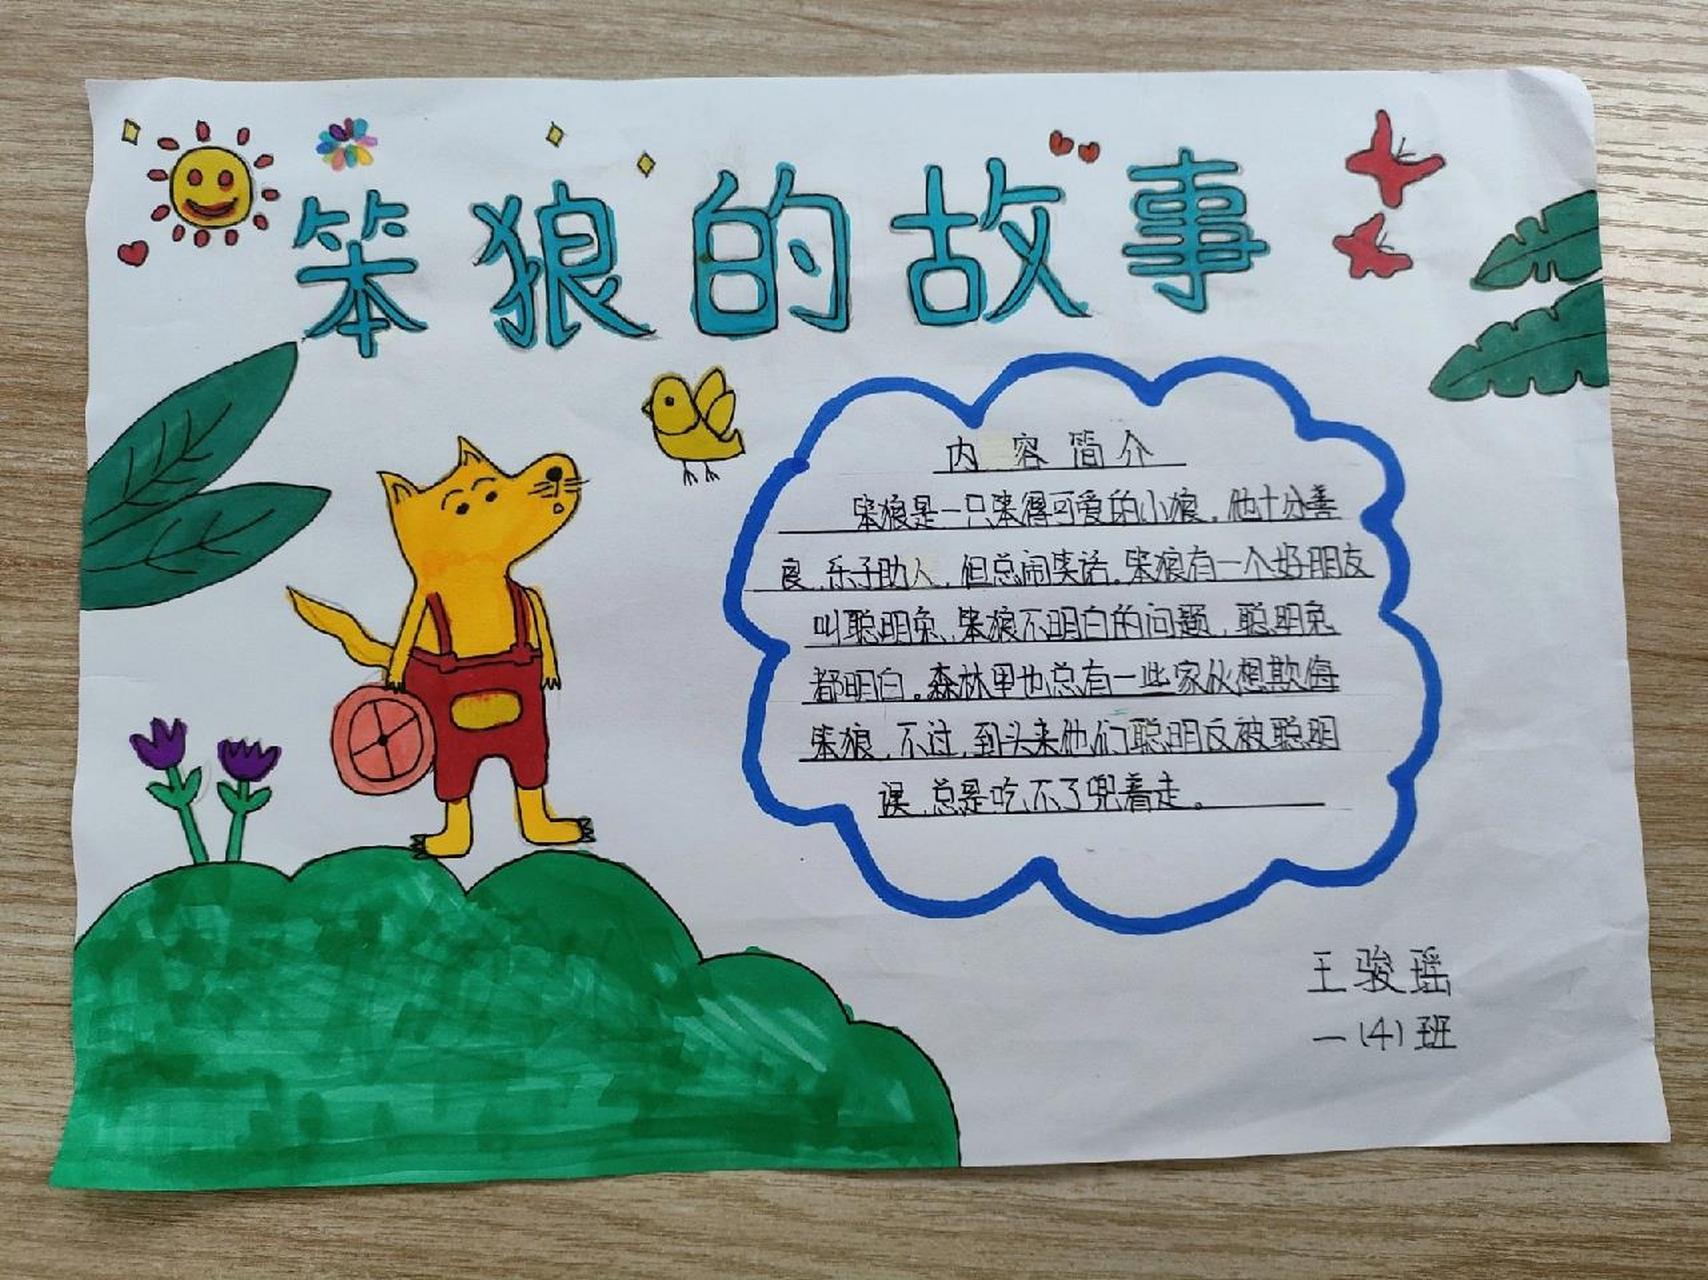 笨狼的故事
内容简介
笨狼是一只笨得可爱的小狼。他十分善
良,乐于助人,但总闹笑话。笨狼有一个好朋友
叫聪明兔,笨狼不明白的问题,聪明兔
都明白。森林里也总有一些家伙想欺侮
笨狼,不过,到头来他们聪明反被聪明
误,总是吃不了兜着走。
王骏瑶
一(4)班